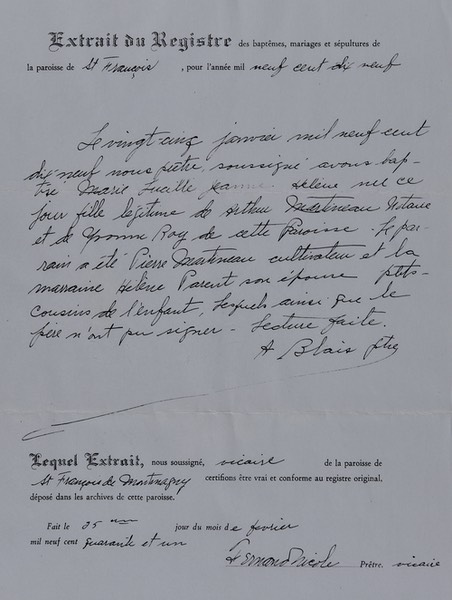 Extrait du Registre des baptêmes, mariages et sépultures de
la paroisse de St François, pour l'année mil neuf cent dix neuf
Le vingt cinq janvier mil neuf cent
dix neuf nous prêtre soussigné avons bap-
tisé Marie Lucille Jeanne Hélène née ce
jour fille légitime de Arthur Martineau
et de Yvonne Roy de cette Paroisse. Le par-
rain a été Pierre Martineau cultivateur et la
marraine Hélène Parent son épouse ptits-
cousins de l'enfant, lesquels ainsi que le
père n'ont pu signer - Lecture faite.
A Blais ptre
Lequel Extrait, nous soussigné, vicaire de la paroisse de
St François de Montmagny certifions être vrai et conforme au registre original,
déposé dans les archives de cette paroisse.
Fait le 25 jour du mois de février
mil neuf cent quarante et un
Fernand Nicole Prêtre, vicaire